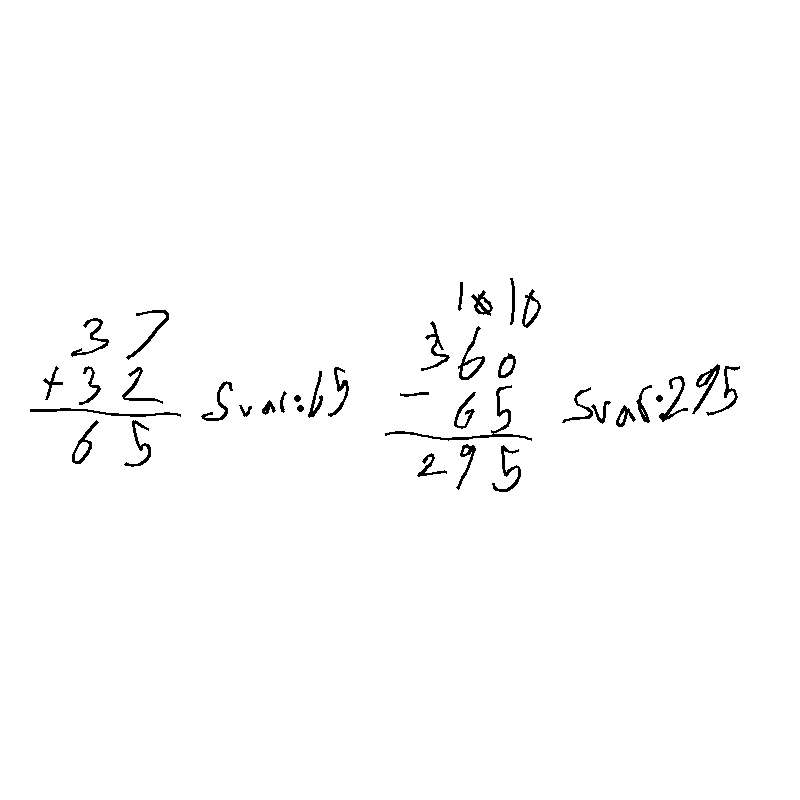 37
+32
65
Svar:65
10 10
360
- 65
295
Svar:295